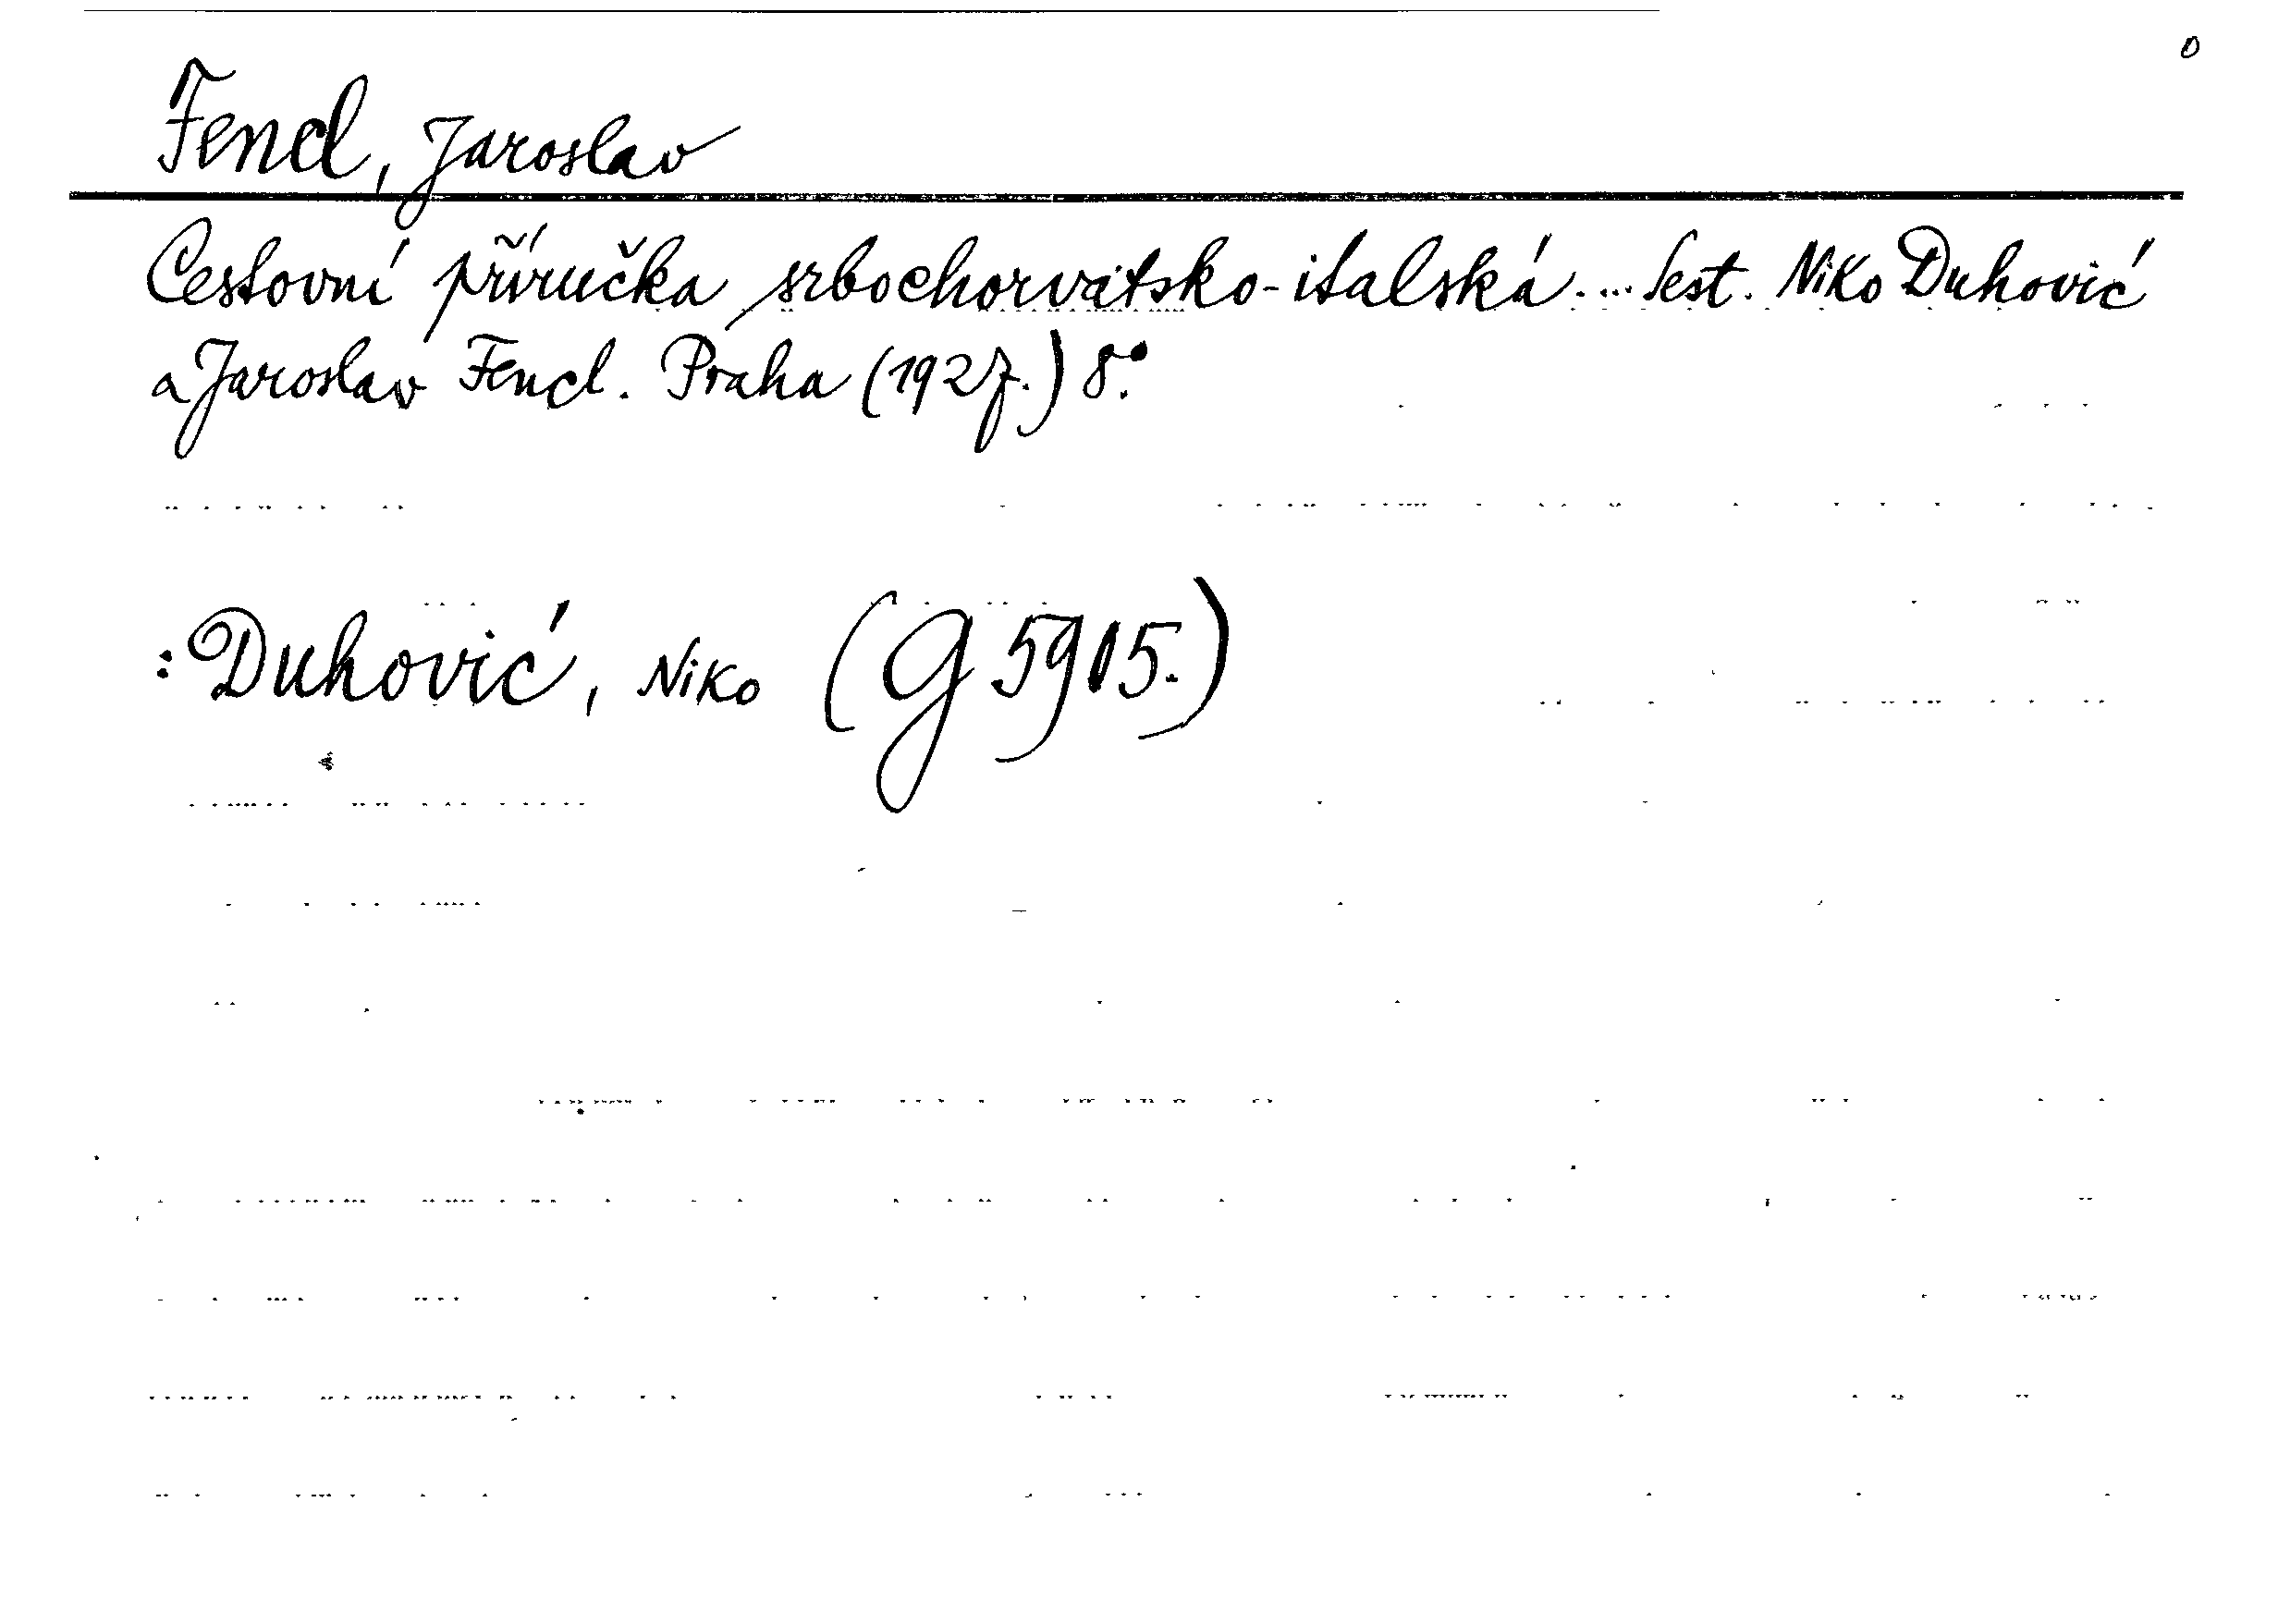 0
Fencl, Jaroslav
Cestovní příručka srbochorvátsko-italská. ... Sest. Niko Duhović
a Jaroslav Fencl. Praha (1927.) 8.°
: Duhović, Niko (G 5905.)